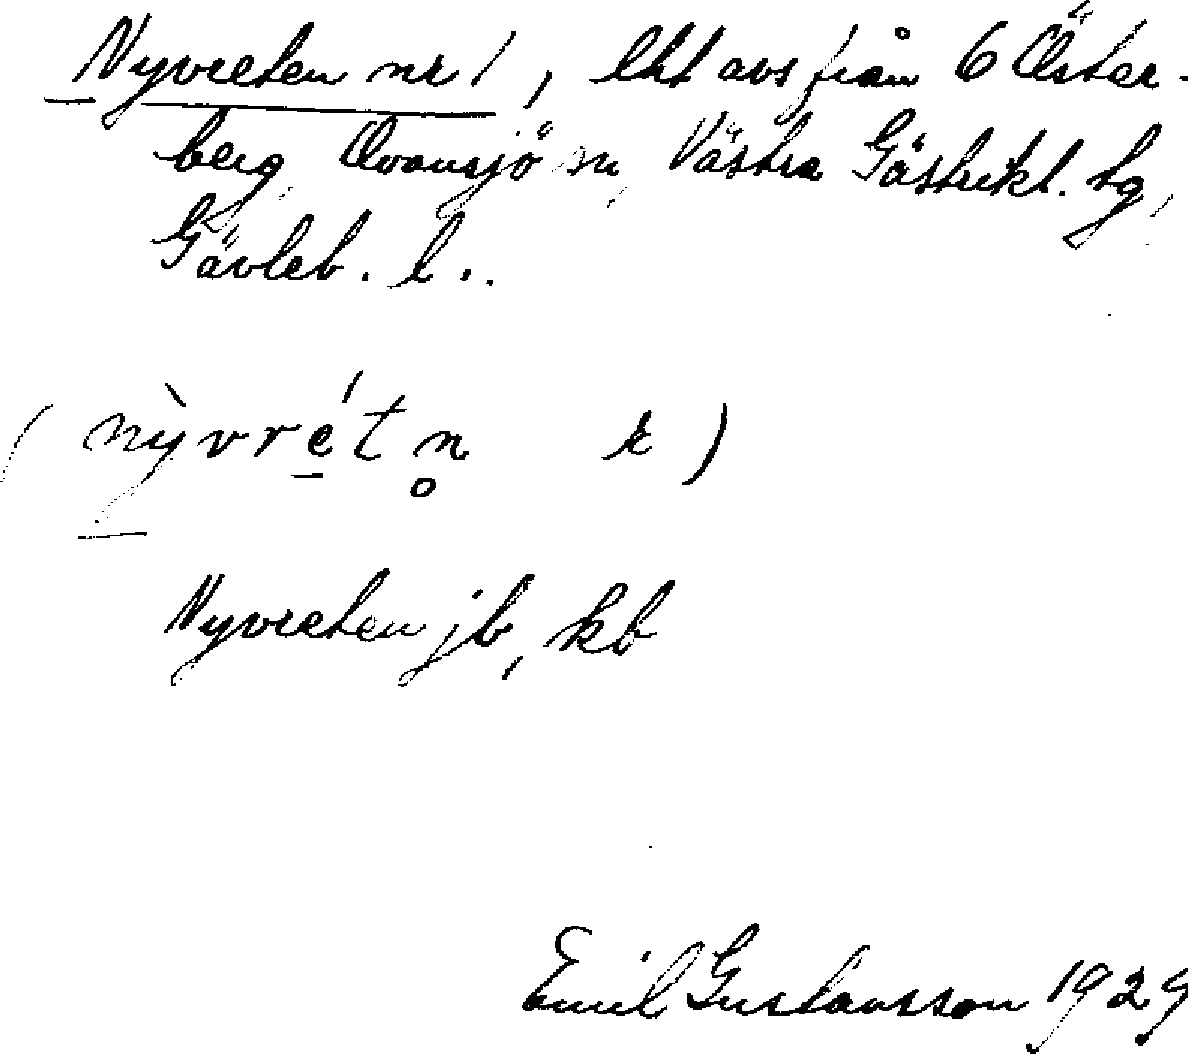 Nyvreten nr 1, lht avs från 6 Öster-
berg, Ovansjö sn, Västra Gästrikl. tg,
Gävleb. l..
(nỳvrétn̥ k)
Nyvreten jb, kb
Emil Gustavsson 1929